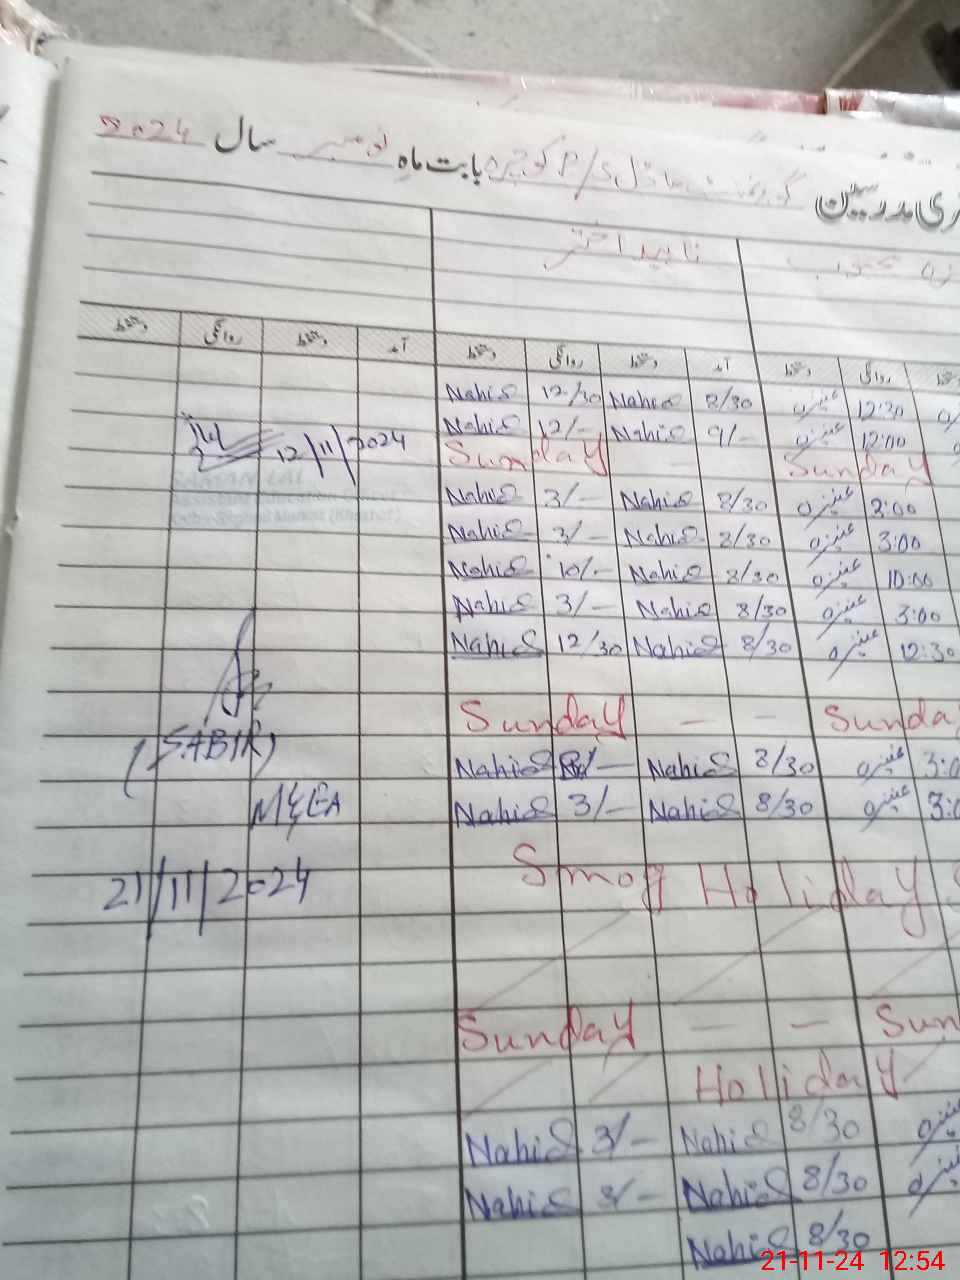 ری مدرسین گورنمنٹ ماڈل P/S کوجرہ بابت ماہ نومبر سال 2024
ناہید اختر
دستخط روانگی دستخط آمد دستخط روانگی دستخط آمد دستخط روانگی
Nahid 12/30 Nahid 8/30 عنیزہ 12:30
Nahid 12/- Nahid 9/- عنیزہ 12:00
12/11/2024 Sunday – Sunday
SAJAN LAL
Assistant Education Officer
Nahid 3/- Nahid 8/30 عنیزہ 3:00
Nahid 3/- Nahid 8/30 عنیزہ 3:00
Nahid 10/- Nahid 8/30 عنیزہ 10:00
Nahid 3/- Nahid 8/30 عنیزہ 3:00
Nahid 12/30 Nahid 8/30 عنیزہ 12:30
Sunday – – Sunda
(SABIR) Nahid /- Nahid 8/30 عنیزہ 3:0
M&EA Nahid 3/- Nahid 8/30 عنیزہ 3:0
21/11/2024 Smog Holiday
Sunday – – Sun
Holiday
Nahid 3/- Nahid 8/30 عنیزہ
Nahid 3/- Nahid 8/30 عنیزہ
Nahid 8/30
21-11-24 12:54